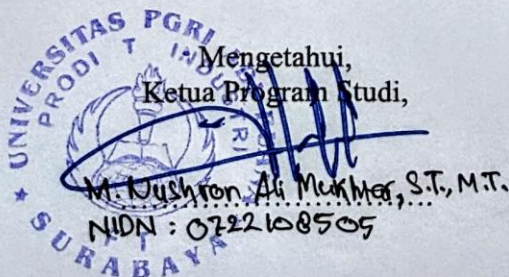 UNIVERSITAS PGRI
SURABAYA
PRODI T INDUSTRI
Mengetahui,
Ketua Program Studi,
M. Nushron Ali Mukhtar, S.T., M.T.
NIDN : 0722108505